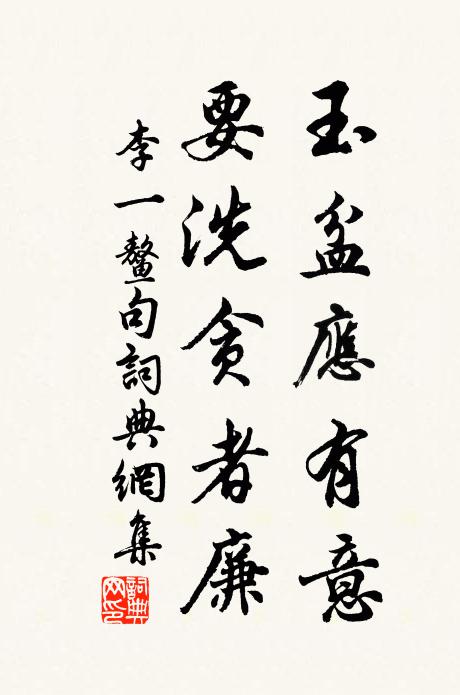 玉盆應有意
要洗貪者廉
李一鰲句詞典網集
詞典
网印